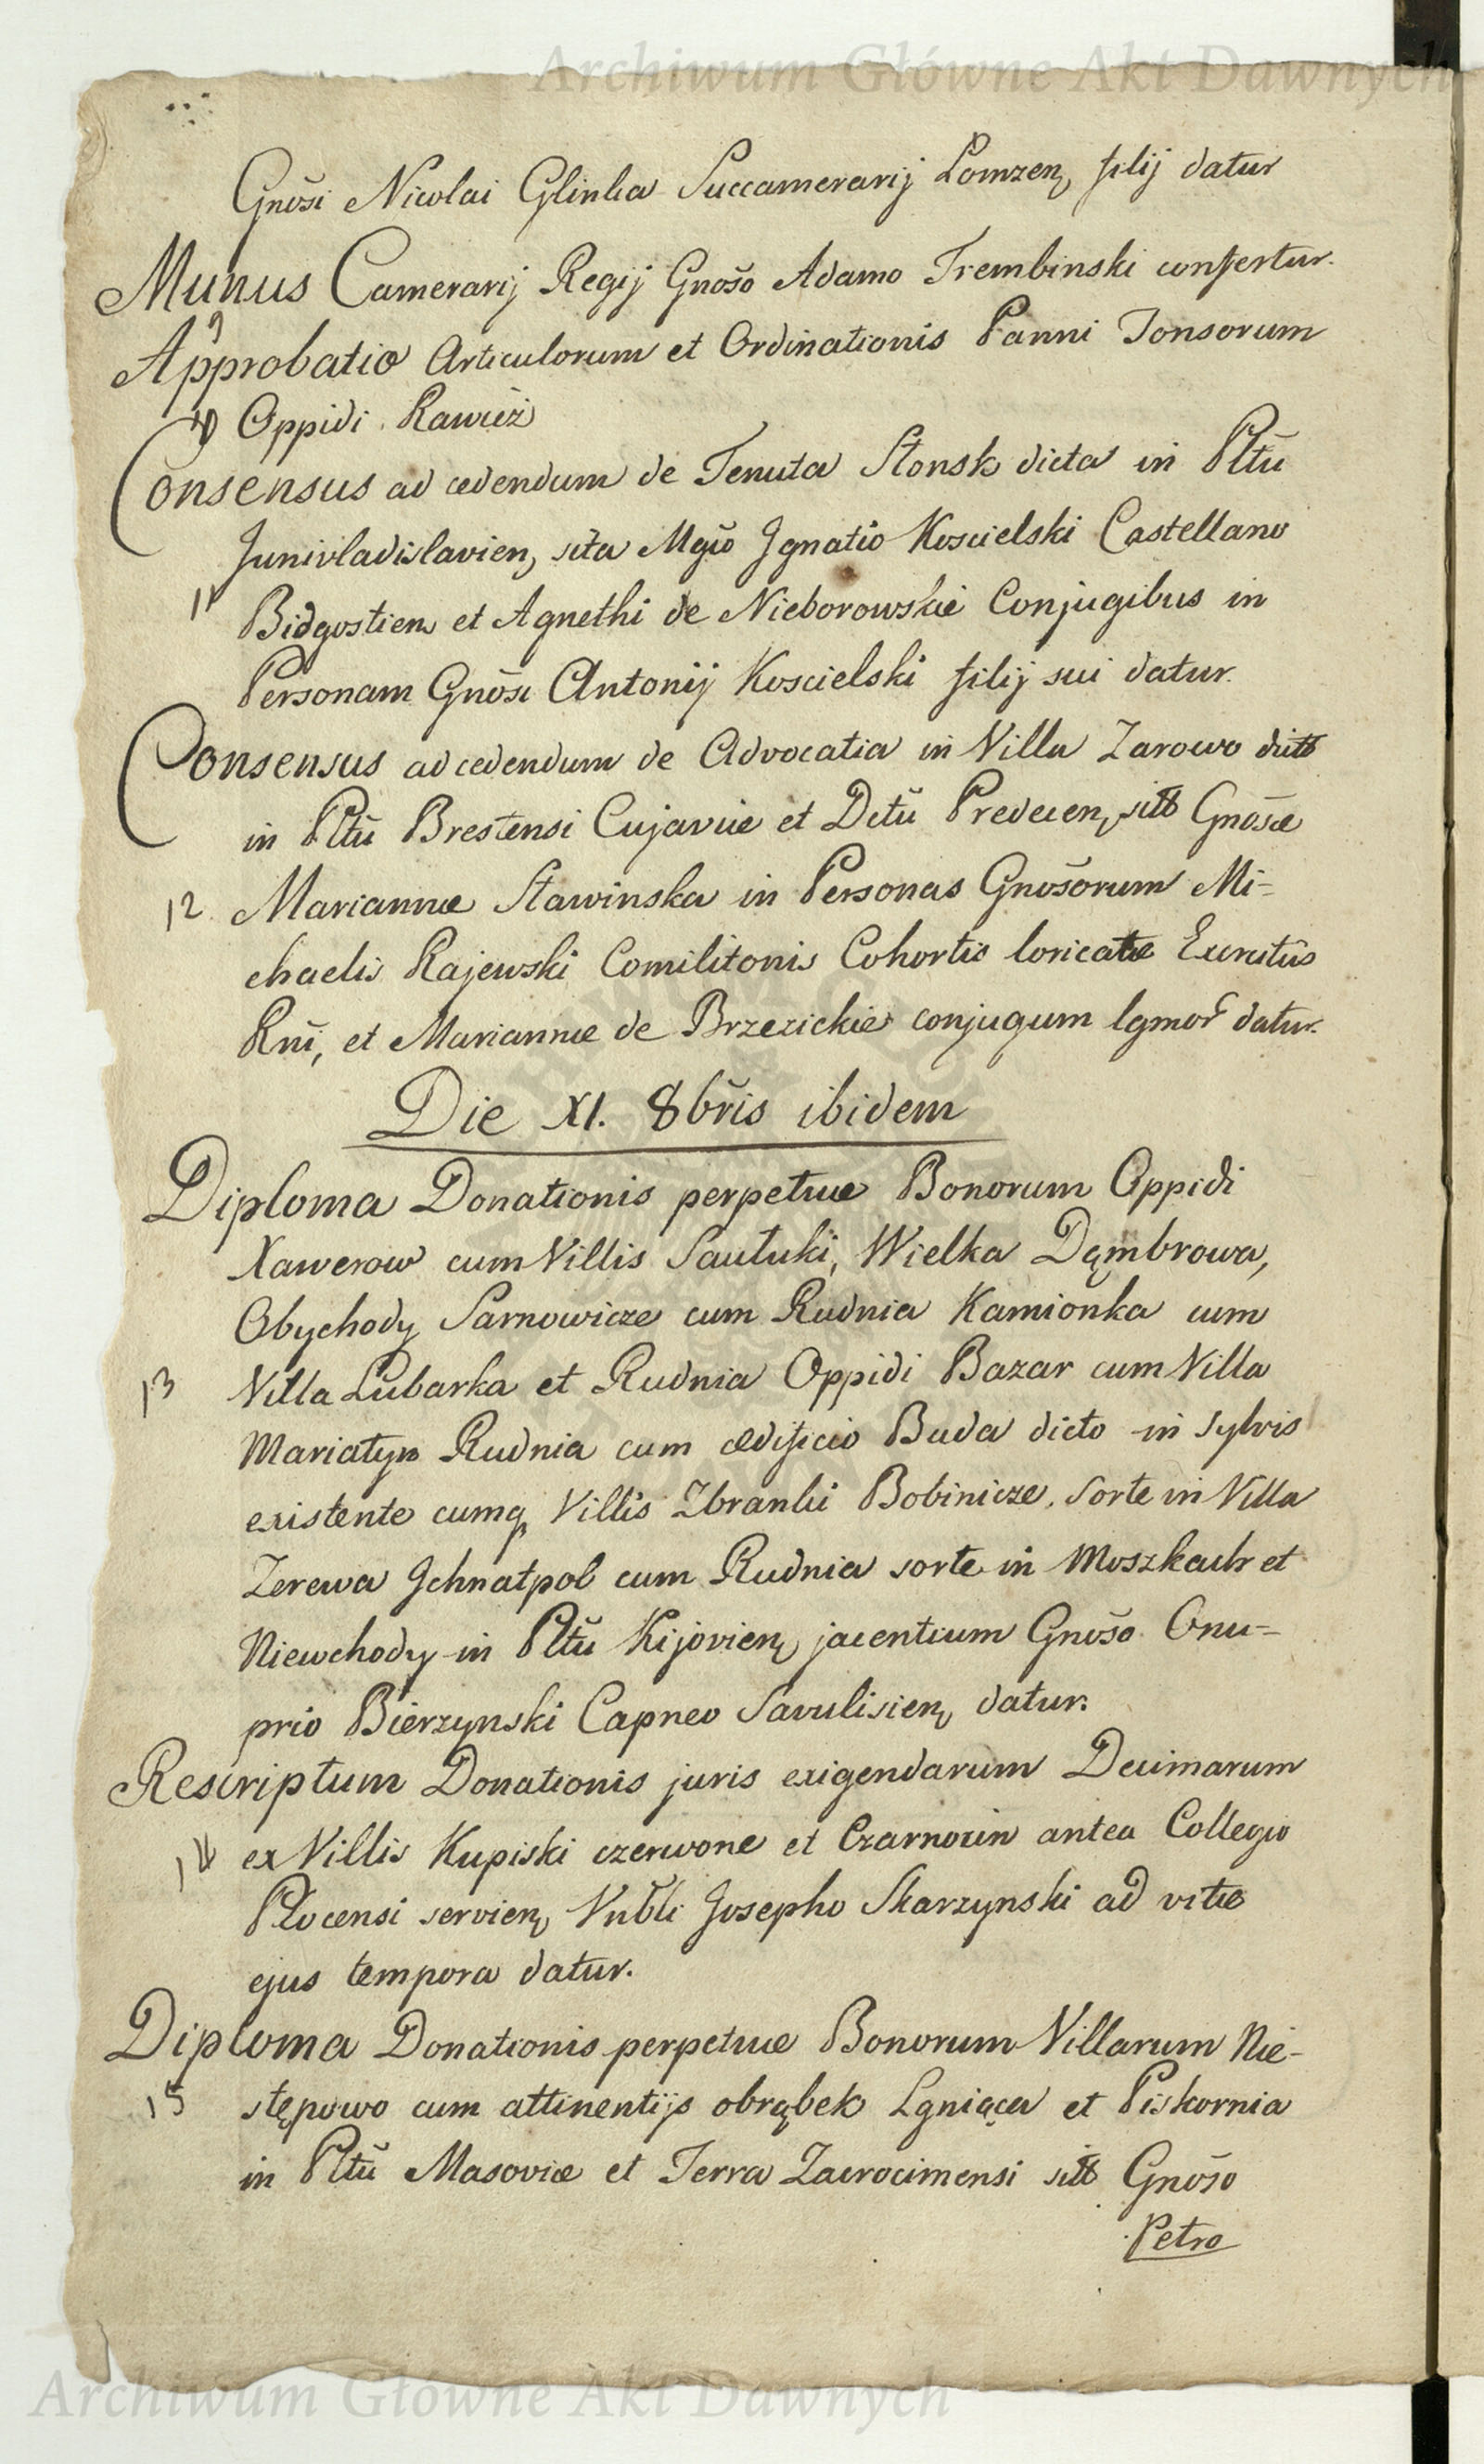 Archiwum Główne Akt Dawnych
Gnõsi Nicolai Glinka Succamerarij Lomzen, filij datur
Munus Camerarij Regij Gnošo Adamo Trembinski confertur.
9
Approbatio Articulorum et Ordinationis Panni Tonsorum
10 Oppidi Rawicz
Consensus ad cedendum de Tenuta Stonsk dicta in Pltũ
Junivladislavien, sita Mgõ Jgnatio Koscielski Castellano
11 Bidgostien et Agnethi de Nieborowskie Conjugibus in
Personam Gnõsi Antonij Koscielski filij sui datur.
Consensus ad cedendum de Advocatia in Villa Zarowo dicta
in Pltũ Brestensi Cujaviæ et Dctũ Predecen, sita Gnõsæ
12 Mariannæ Stawinska in Personas Gnõsorum Mi-
chaelis Rajewski Comilitonis Cohortis loricatæ Exercitûs
Rnĩ, et Mariannæ de Brzezickie conjugum lgmor datur.
Die XI. 8brĩs ibidem
Diploma Donationis perpetuæ Bonorum Oppidi
Xawerow cum Villis Sautuki, Wielka Dąmbrowa,
Obychody Sarnowicze cum Rudnia Kamionka cum
13 Villa Lubarka et Rudnia Oppidi Bazar cum Villa
Mariatyn Rudnia cum ædificio Buda dicto in Sylvis
existente cumq, Villis Zbranki Bobinicze, Sorte in Villa
Zerewa Jchnatpol cum Rudnia sorte in Moszkach et
Niewchody in Pltũ Kijovien, jacentium Gnõso Onu-
prio Bierzynski Capneo Savulisien, datur.
Rescriptum Donationis juris exigendarum Decimarum
14 ex Villis Kupiski czerwone et Czarnocin antea Collegio
Plocensi servien, Vnbli Josepho Skarzynski ad vitæ
ejus tempora datur.
Diploma Donationis perpetuæ Bonorum Villarum Nie-
15 stępowo cum attinentijs obrąbek Lgniąca et Piskornia
in Pltũ Masoviæ et Terra Zacrocimensi sita Gnõso
Petro
Archiwum Główne Akt Dawnych